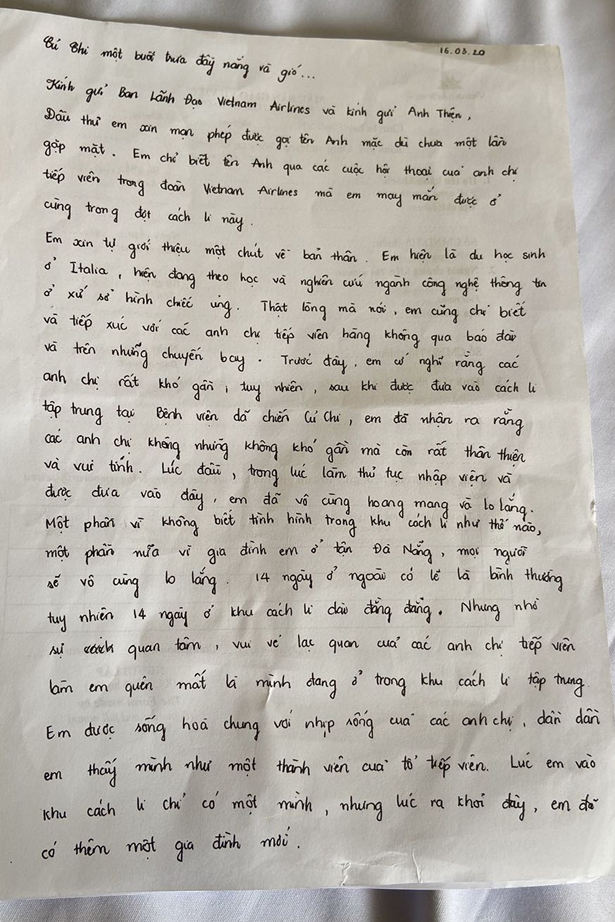 16.03.20
Củ Chi một buổi trưa đầy nắng và gió...
Kính gửi Ban Lãnh Đạo Vietnam Airlines và kính gửi Anh Thiện,
Đầu thư em xin mạn phép được gọi tên Anh mặc dù chưa một lần
gặp mặt. Em chỉ biết tên Anh qua các cuộc hội thoại của anh chị
tiếp viên trong đoàn Vietnam Airlines mà em may mắn được ở
cùng trong đợt cách li này.
Em xin tự giới thiệu một chút về bản thân. Em hiện là du học sinh
ở Italia, hiện đang theo học và nghiên cứu ngành công nghệ thông tin
ở xứ sở hình chiếc ủng. Thật lòng mà nói, em cũng chỉ biết
và tiếp xúc với các anh chị tiếp viên hàng không qua báo đài
và trên những chuyến bay. Trước đây, em cứ nghĩ rằng các
anh chị rất khó gần, tuy nhiên, sau khi được đưa vào cách li
tập trung tại Bệnh viện dã chiến Củ Chi, em đã nhận ra rằng
các anh chị không những không khó gần mà còn rất thân thiện
và vui tính. Lúc đầu, trong lúc làm thủ tục nhập viện và
được đưa vào đây, em đã vô cùng hoang mang và lo lắng.
Một phần vì không biết tình hình trong khu cách li như thế nào,
một phần nữa vì gia đình em ở tận Đà Nẵng, mọi người
sẽ vô cùng lo lắng. 14 ngày ở ngoài có lẽ là bình thường
tuy nhiên 14 ngày ở khu cách li dài đằng đẵng. Nhưng nhờ
sự quan tâm, vui vẻ lạc quan của các anh chị tiếp viên
làm em quên mất là mình đang ở trong khu cách li tập trung.
Em được sống hoà chung với nhịp sống của các anh chị, dần dần
em thấy mình như một thành viên của tổ tiếp viên. Lúc em vào
khu cách li chỉ có một mình, nhưng lúc ra khỏi đây, em đã
có thêm một gia đình mới.